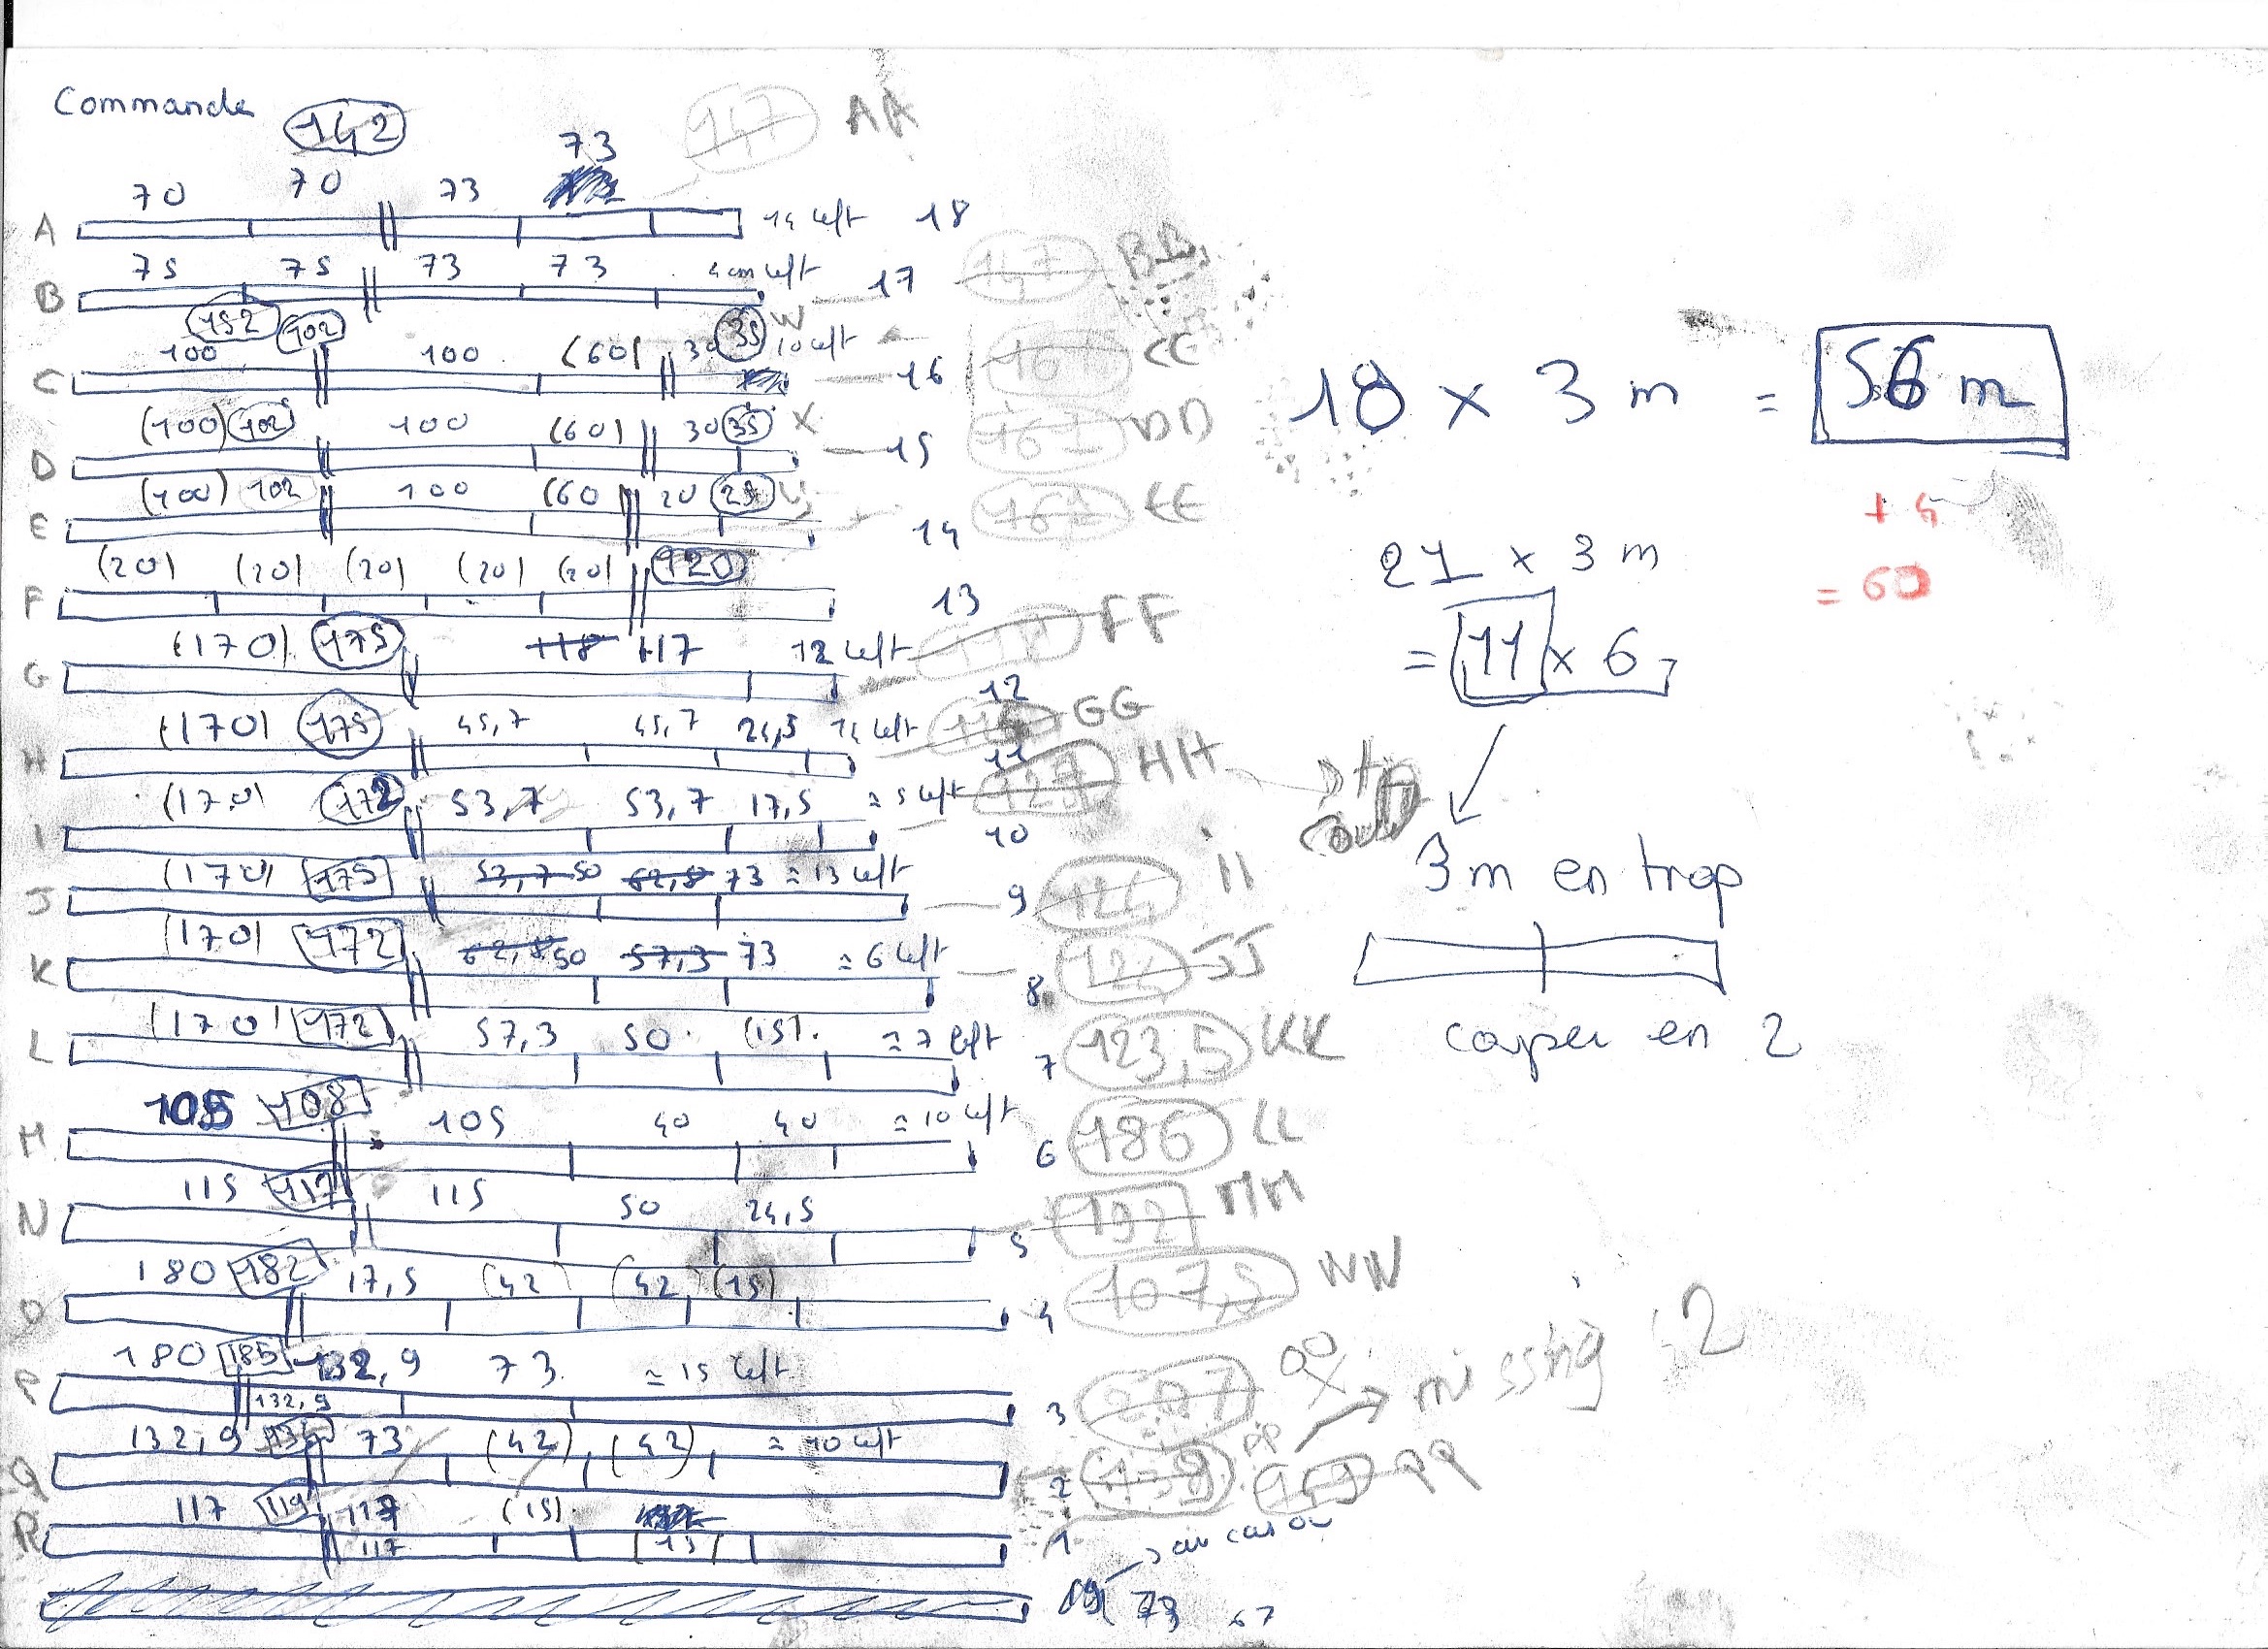 Commande
142 147 AA
73
70 70 73
A 14 left 18
75 75 73 73 4 cm left
B 17 147 BB
152 102 35 W
100 100 (60) 30 10 left
C 16 161 CC
(100) 102 100 (60) 30 35 X
D 15 161 DD
(100) 102 100 (60 20 25
E 14 161 EE
(20) (20) (20) (20) (20) 120
F 13
(170) 175 118 117 12 left FF
G 12
(170) 175 45,7 45,7 24,5 14 left GG
H 11
(170) 172 53,7 53,7 17,5 ≈ 5 left 127 HH
I 10
(170) 175 53,7 50 62,8 73 ≈ 13 left
J 9 124 II
(170) 172 62,8 50 57,3 73 ≈ 6 left
K 8 124 JJ
(170) 172 57,3 50 (15) ≈ 7 left
L 7 123,5 KK
105 108 105 40 40 ≈ 10 left
M 6 186 LL
115 117 115 50 24,5
N 5 132 MM
180 182 17,5 (42) (42) (15)
O 4 107,5 NN
180 185 132,9 73 ≈ 15 left
P 132,9 3 207 OO
missing 2
132,9 73 (42) (42) ≈ 10 left
Q 2 PP 149 QQ
117 119 117 (15)
R 117 (15) 1
au cas où
19 73 67
18 x 3 m = 56 m
+ 4
= 60
21 x 3 m
= 11 x 6
3 m en trop
couper en 2